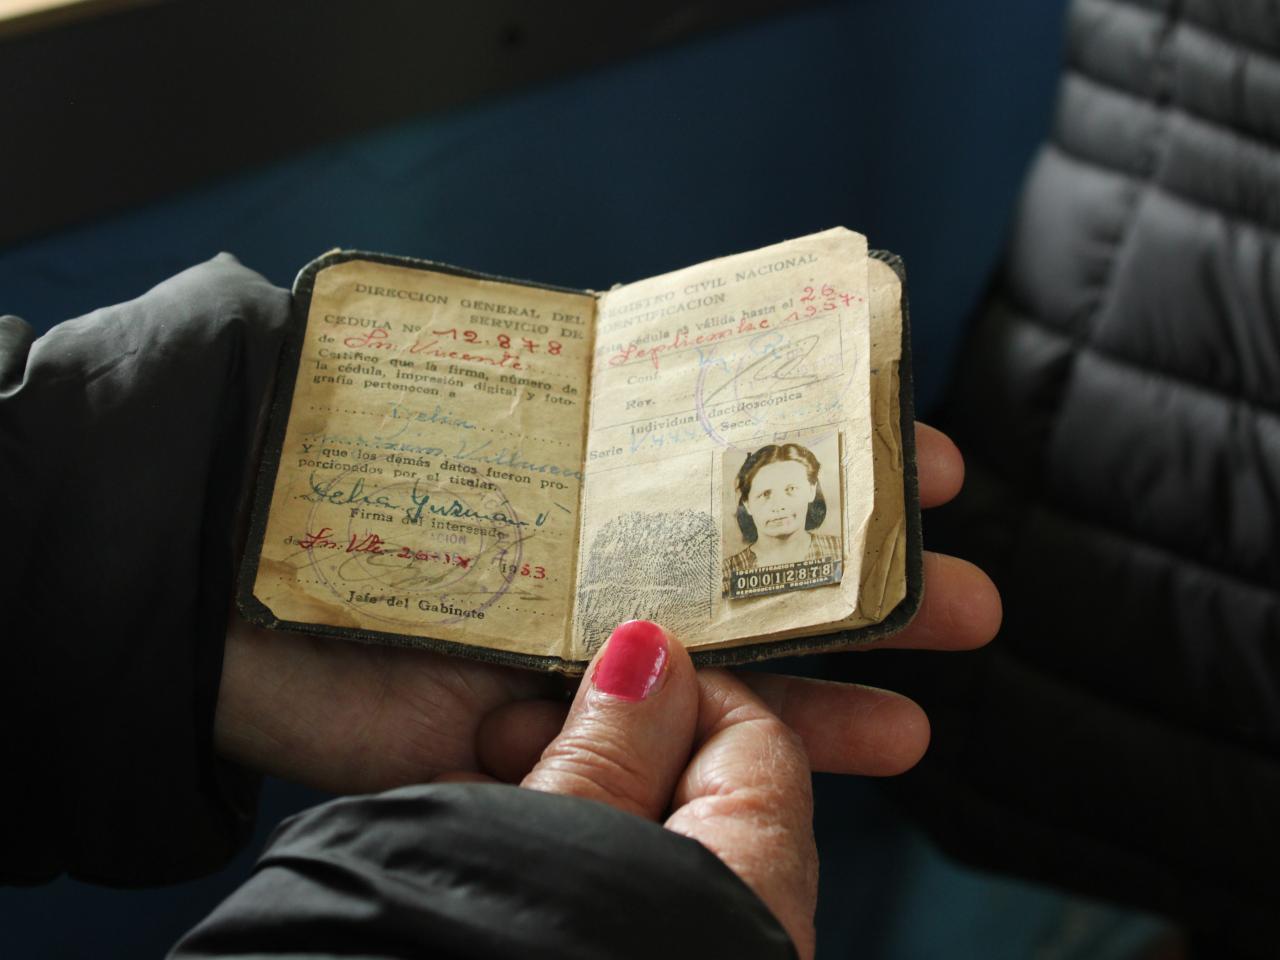 DIRECCION GENERAL DEL
SERVICIO DE
CEDULA Nº 12.878
de Sn. Vicente
Certifico que la firma, número de
la cédula, impresión digital y foto-
grafía pertenecen a
Delia
Guzman
Y que los demás datos fueron pro-
porcionados por el titular.
Delia Guzmán V
Firma del interesado
de Sn. Vte. 26-IX 1953
Jefe del Gabinete
REGISTRO CIVIL NACIONAL
IDENTIFICACION
Esta cédula es válida hasta el 26
Septiembre 1957.
Conf.
Rev.
Individual dactiloscópica
Serie Secc.
IDENTIFICACION - CHILE
00012878
REPRODUCCION PROHIBIDA